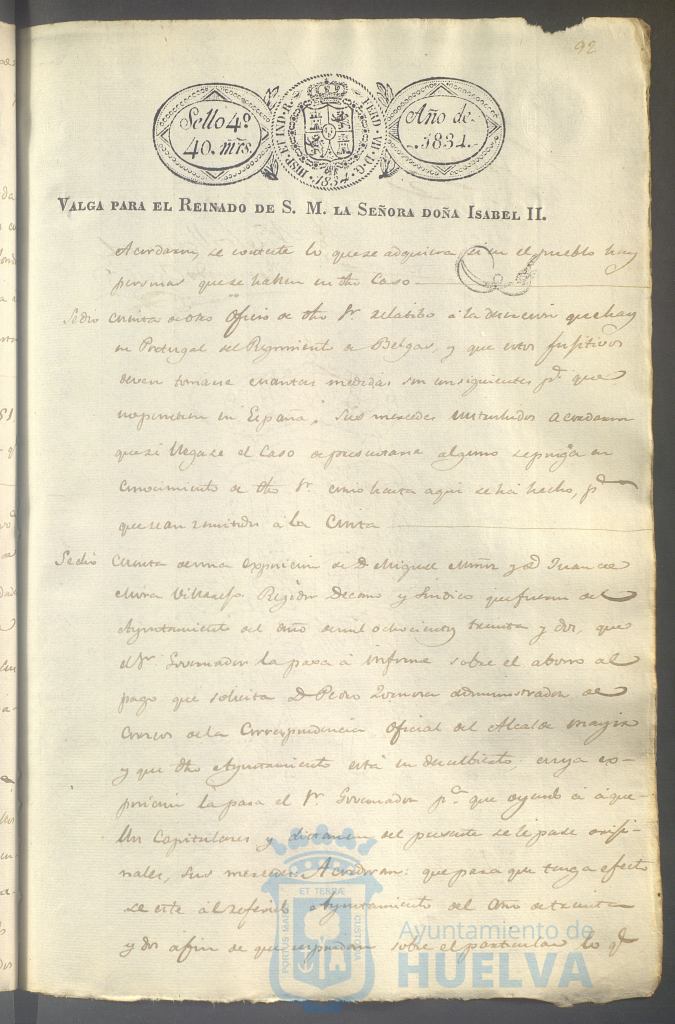 92
Sello 4º
40. mrs.
HISP. ET IND. R. FERD. VII. D. G. 1834
Año de
1834.
VALGA PARA EL REINADO DE S. M. LA SEÑORA DOÑA ISABEL II.
Acordaron se conteste lo que se adquiera si en el pueblo hay
personas que se hallen en dho Caso
Se dio Cuenta de otro Oficio de dho Sr. relatibo a la desercion que hay
en Portugal del Regimiento de Belgas, y que estos fujitivos
deven tomarse cuantas medidas son consiguientes pª que
no penetren en España; Sus mercedes enterados acordaron
que si llegase el Caso de presentarse alguno se ponga en
Conocimiento de dho Sr. como hasta aqui se há hecho, pª
que sean remitidos a la
Se dió Cuenta de una exposicion de D. Miguel y D. Juan de
Mora Villaseñor Regidor Decano y Sindico que fueron del
Ayuntamiento del año de mil ochocientos treinta y dos, que
el Sr. Governador la pasa á informe sobre el abono al
pago que solicita D. Pedro administrador de
Correos de la Correspondencia Oficial del Alcalde mayor
y que dho Ayuntamiento está en descubierto; cuya ex-
posicion la pasa el Sr. Governador pª que oyendo á aque-
llos Capitulares y dictamen del presente se le pase oriji-
nales, sus mercedes Acordaron: que para que tenga efecto
se cite al referido Ayuntamiento del año de treinta
y dos afin de que respondan sobre el particular lo qe
PORTUS MARIS ET TERRÆ CUSTODIA
Ayuntamiento de
HUELVA